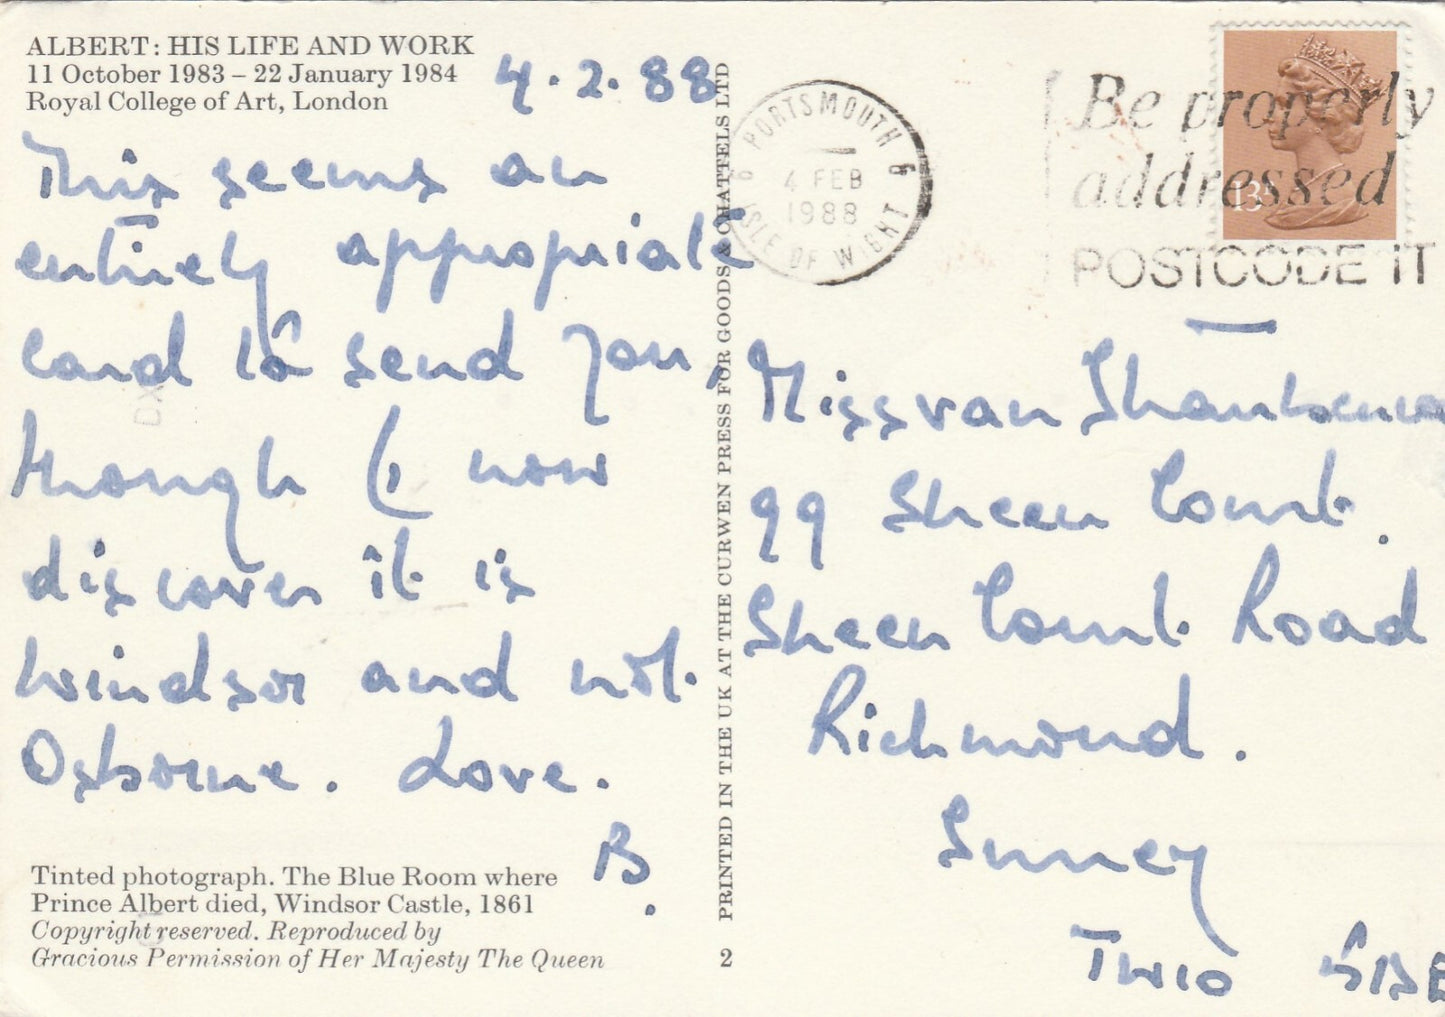 ALBERT: HIS LIFE AND WORK
11 October 1983 – 22 January 1984
Royal College of Art, London
4.2.88
This seems an
entirely appropriate
card to send you,
though I now
discover it is
Windsor and not
Osborne. Love.
B.
Tinted photograph. The Blue Room where
Prince Albert died, Windsor Castle, 1861
Copyright reserved. Reproduced by
Gracious Permission of Her Majesty The Queen
PRINTED IN THE UK AT THE CURWEN PRESS FOR GOODS & CHATTELS LTD
2
PORTSMOUTH 6
4 FEB
1988
6 ISLE OF WIGHT
Be properly
addressed
POSTCODE IT
13P
Miss van
99 Sheen Court.
Sheen Court Road
Richmond.
Surrey
TW10